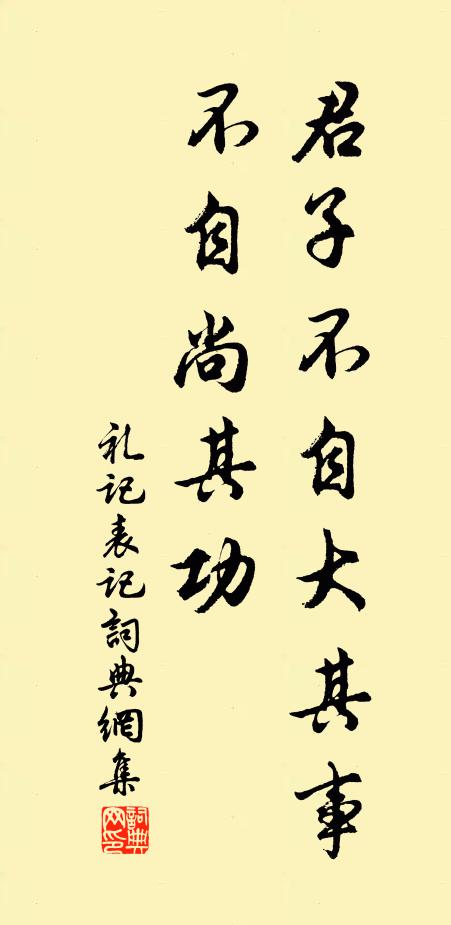 君子不自大其事
不自尚其功
礼记表记詞典網集
詞典网印